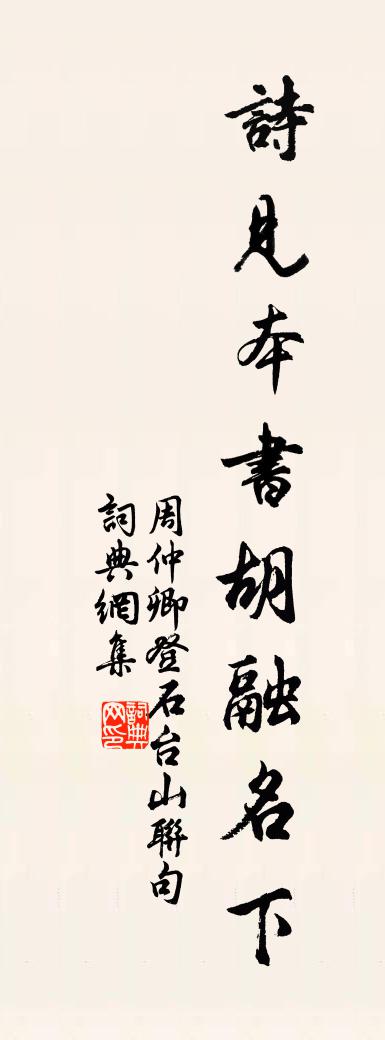 詩見本書胡融名下
周仲卿登石台山聯句
詞典網集
詞典网印